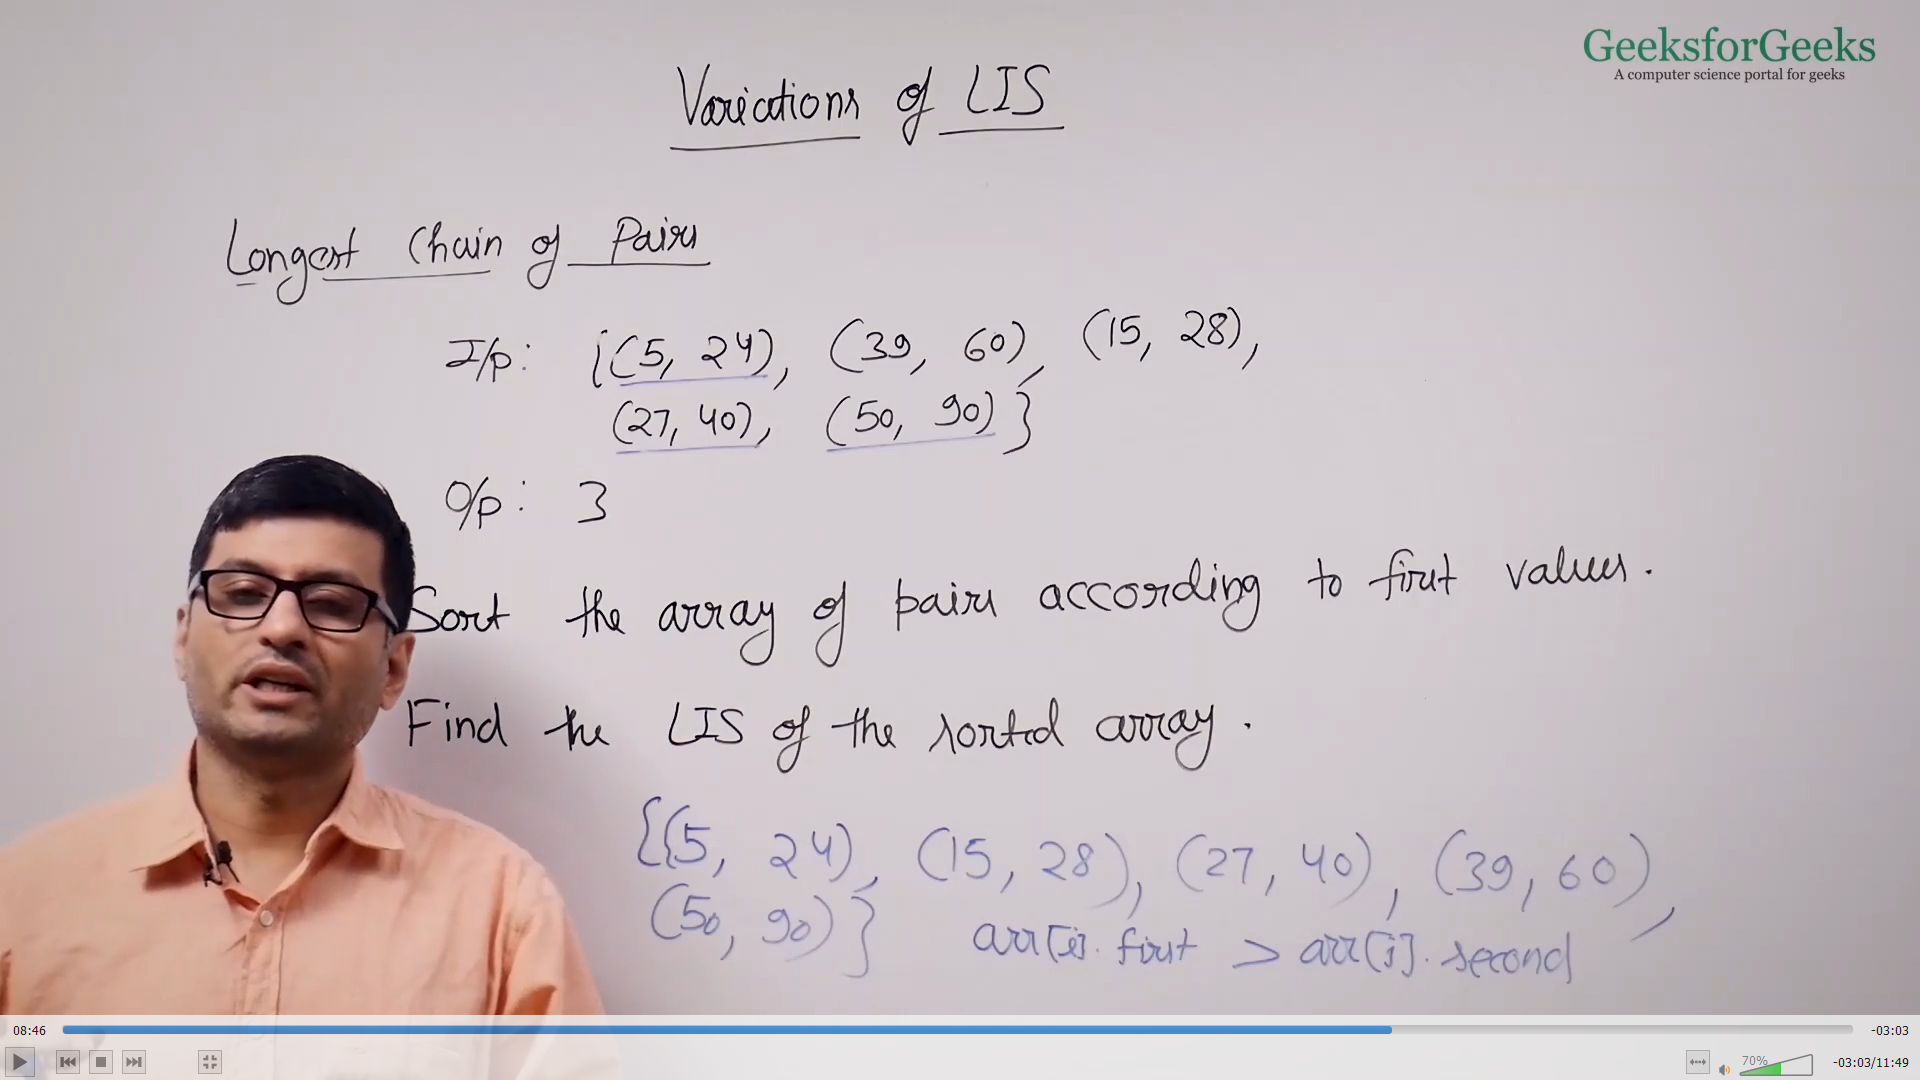 GeeksforGeeks
A computer science portal for geeks
Variations of LIS
Longest Chain of Pairs
I/p: {(5, 24), (39, 60), (15, 28),
(27, 40), (50, 90)}
O/p: 3
Sort the array of pairs according to first values.
Find the LIS of the sorted array.
{(5, 24), (15, 28), (27, 40), (39, 60),
(50, 90)} arr[i].first > arr[j].second
08:46 -03:03
70% -03:03/11:49